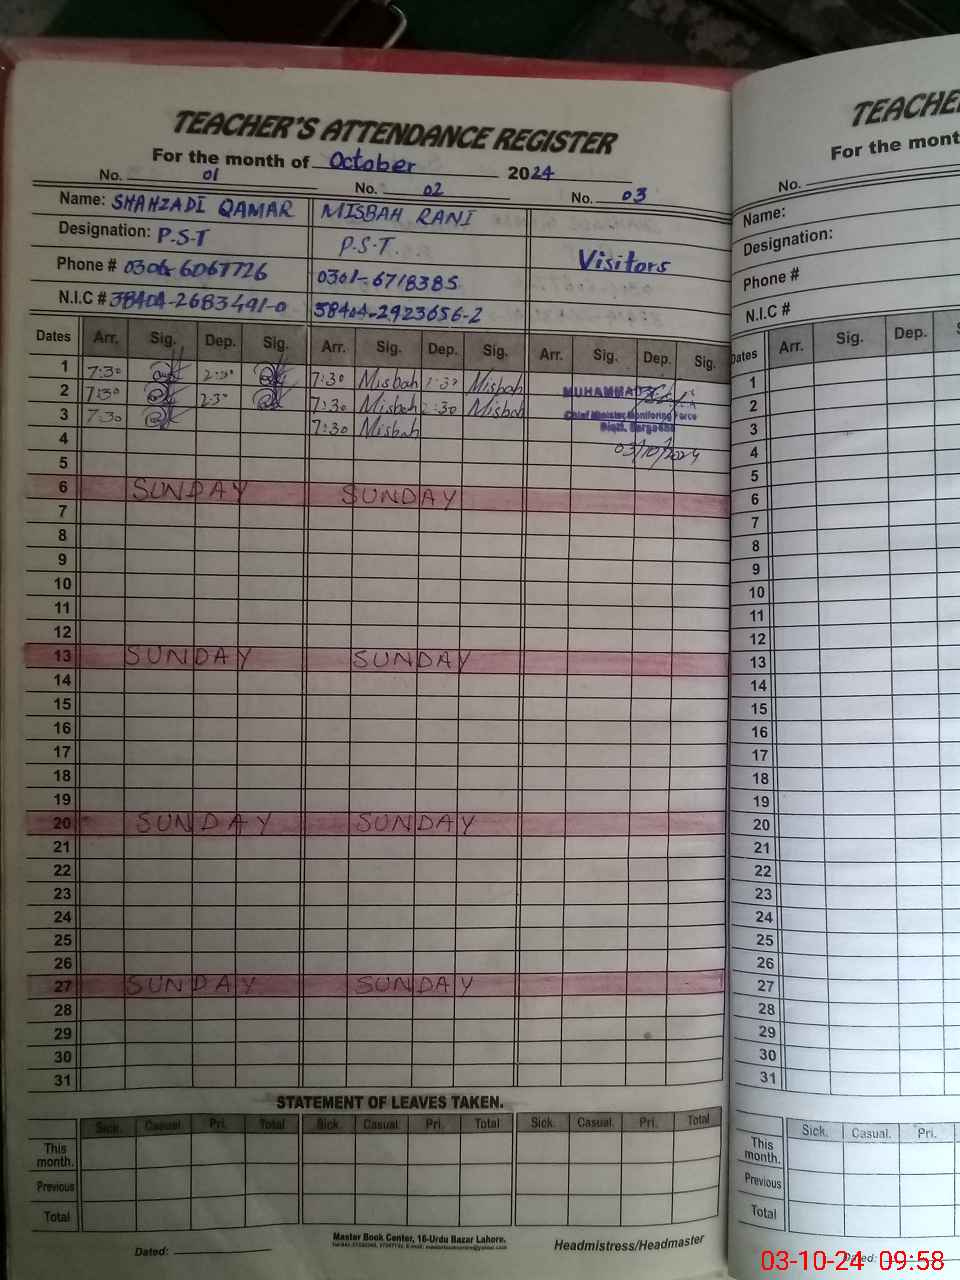 TEACHER'S ATTENDANCE REGISTER
For the month of October 2024
No. 01 No. 02 No. 03
Name: SHAHZADI QAMAR MISBAH RANI
Designation: P.S.T P.S.T. Visitors
Phone # 0306-6067726 0301-6718385
N.I.C # 38404-2683491-0 38404-2923656-2
Dates Arr. Sig. Dep. Sig. Arr. Sig. Dep. Sig. Arr. Sig. Dep. Sig.
1 7:30 2:30 7:30 Misbah 2:30 Misbah MUHAMMAD
2 7:30 2:30 7:30 Misbah 2:30 Misbah Chief Minister Monitoring Force
3 7:30 7:30 Misbah Distt. Sargodha
4 03/10/2024
5
6 SUNDAY SUNDAY
7
8
9
10
11
12
13 SUNDAY SUNDAY
14
15
16
17
18
19
20 SUNDAY SUNDAY
21
22
23
24
25
26
27 SUNDAY SUNDAY
28
29
30
31
STATEMENT OF LEAVES TAKEN.
Sick. Casual. Pri. Total Sick. Casual. Pri. Total Sick. Casual. Pri. Total
This month.
Previous
Total
Master Book Center, 16-Urdu Bazar Lahore.
Dated: Headmistress/Headmaster
TEACHE
For the mont
No.
Name:
Designation:
Phone #
N.I.C #
Dates Arr. Sig. Dep. S
1
2
3
4
5
6
7
8
9
10
11
12
13
14
15
16
17
18
19
20
21
22
23
24
25
26
27
28
29
30
31
Sick. Casual. Pri.
This month.
Previous
Total
Dated:
03-10-24 09:58